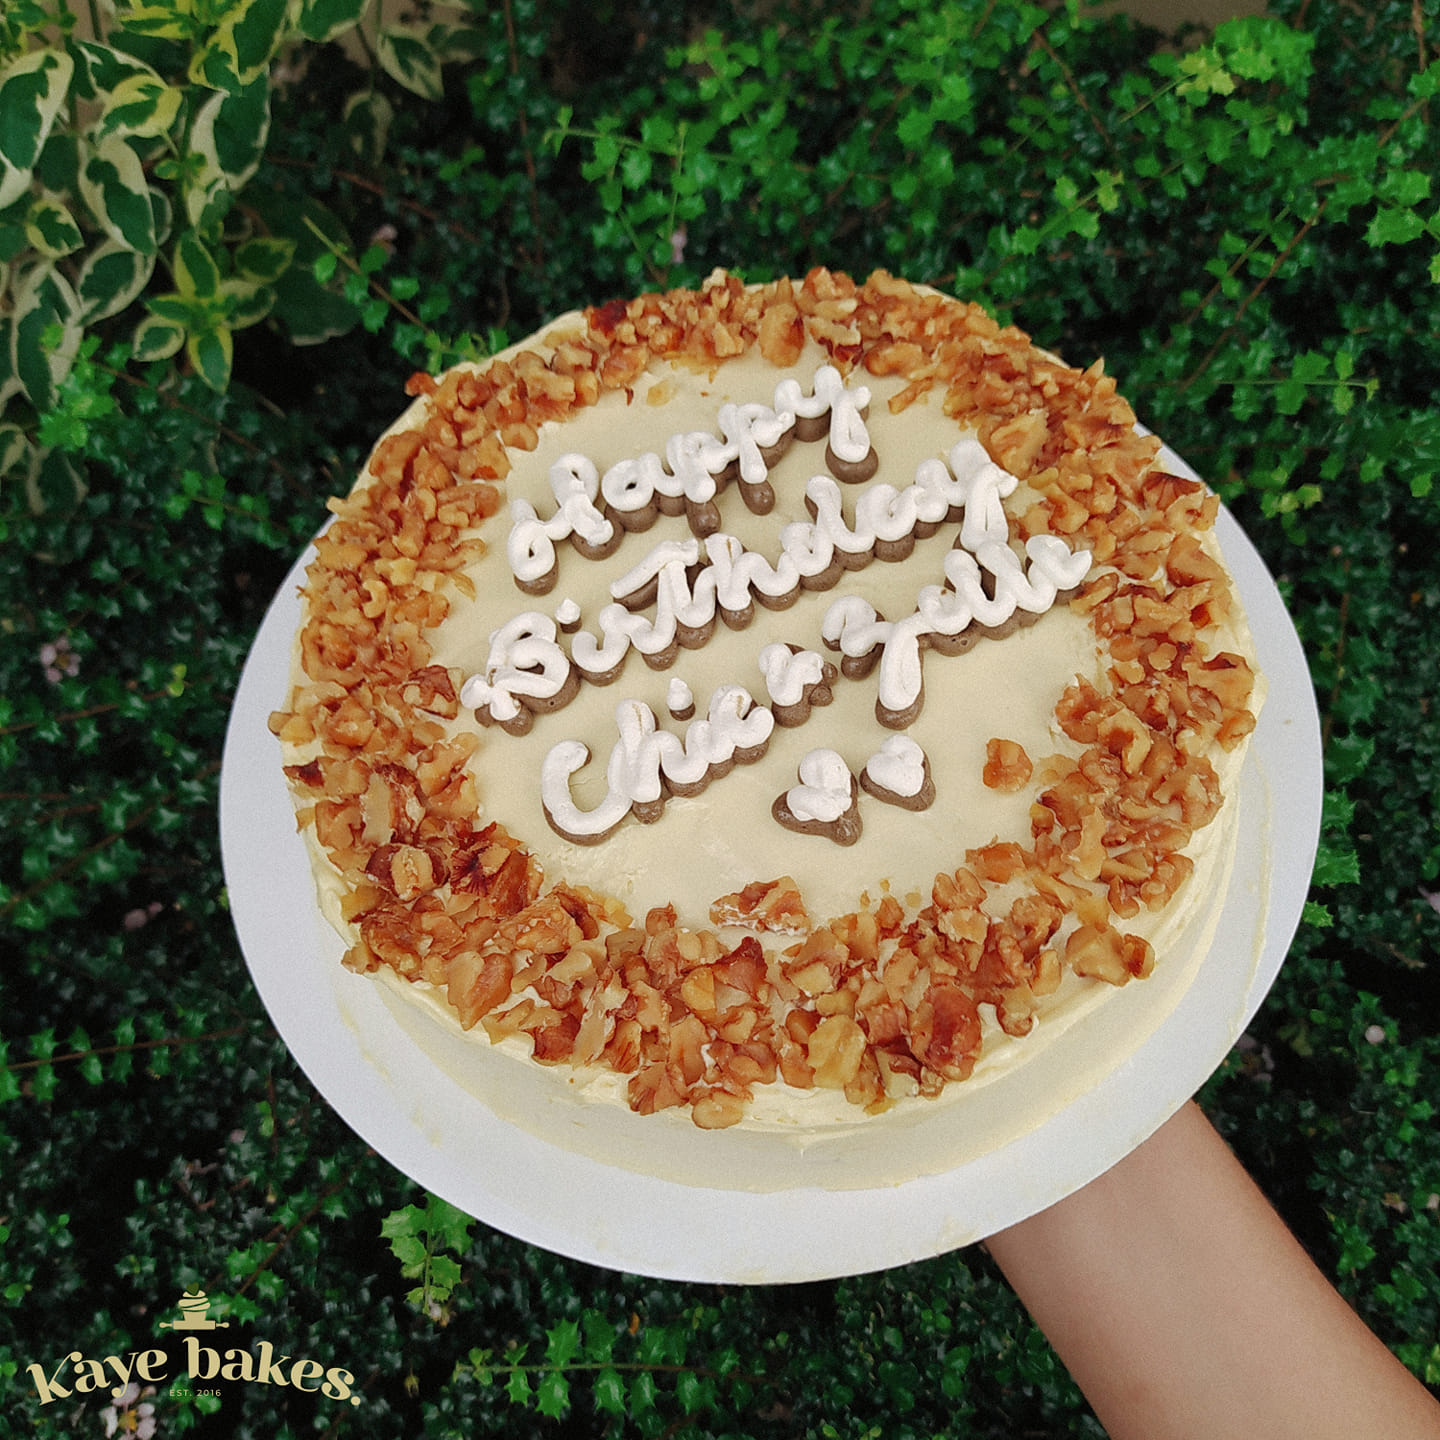 Happy
Birthday
Chie & Zelle
Kaye bakes.
EST. 2016